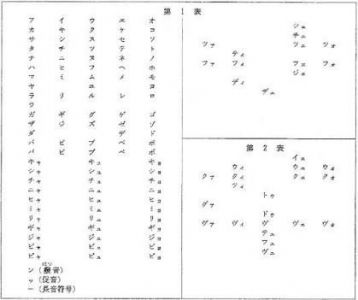 第1表
ア イ ウ エ オ
カ キ ク ケ コ
サ シ ス セ ソ
タ チ ツ テ ト
ナ ニ ヌ ネ ノ
ハ ヒ フ ヘ ホ
マ ミ ム メ モ
ヤ ユ ヨ
ラ リ ル レ ロ
ワ
ガ ギ グ ゲ ゴ
ザ ジ ズ ゼ ゾ
ダ デ ド
バ ビ ブ ベ ボ
パ ピ プ ペ ポ
キャ キュ キョ
シャ シュ ショ
チャ チュ チョ
ニャ ニュ ニョ
ヒャ ヒュ ヒョ
ミャ ミュ ミョ
リャ リュ リョ
ギャ ギュ ギョ
ジャ ジュ ジョ
ビャ ビュ ビョ
ピャ ピュ ピョ
ン(撥音)
ッ(促音)
ー(長音符号)
シェ
チェ
ツァ ツェ ツォ
ティ
ファ フィ フェ フォ
ジェ
ディ
デュ
第2表
イェ
ウィ ウェ ウォ
クァ クィ クェ クォ
ツィ
トゥ
グァ
ドゥ
ヴァ ヴィ ヴ ヴェ ヴォ
テュ
フュ
ヴュ